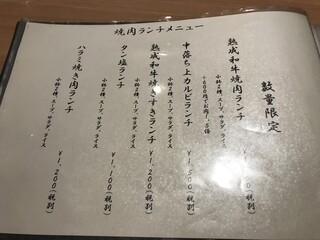 焼肉ランチメニュー
数量限定
熟成和牛焼肉ランチ
小鉢2種、スープ、サラダ、ライス
中落ち上カルビランチ
¥1,500(税別)
熟成和牛焼きすきランチ
小鉢2種、スープ、サラダ、ライス
¥1,200(税別)
タン塩ランチ
小鉢2種、スープ、サラダ、ライス
¥1,100(税別)
ハラミ焼き肉ランチ
小鉢2種、スープ、サラダ、ライス
¥1,200(税別)